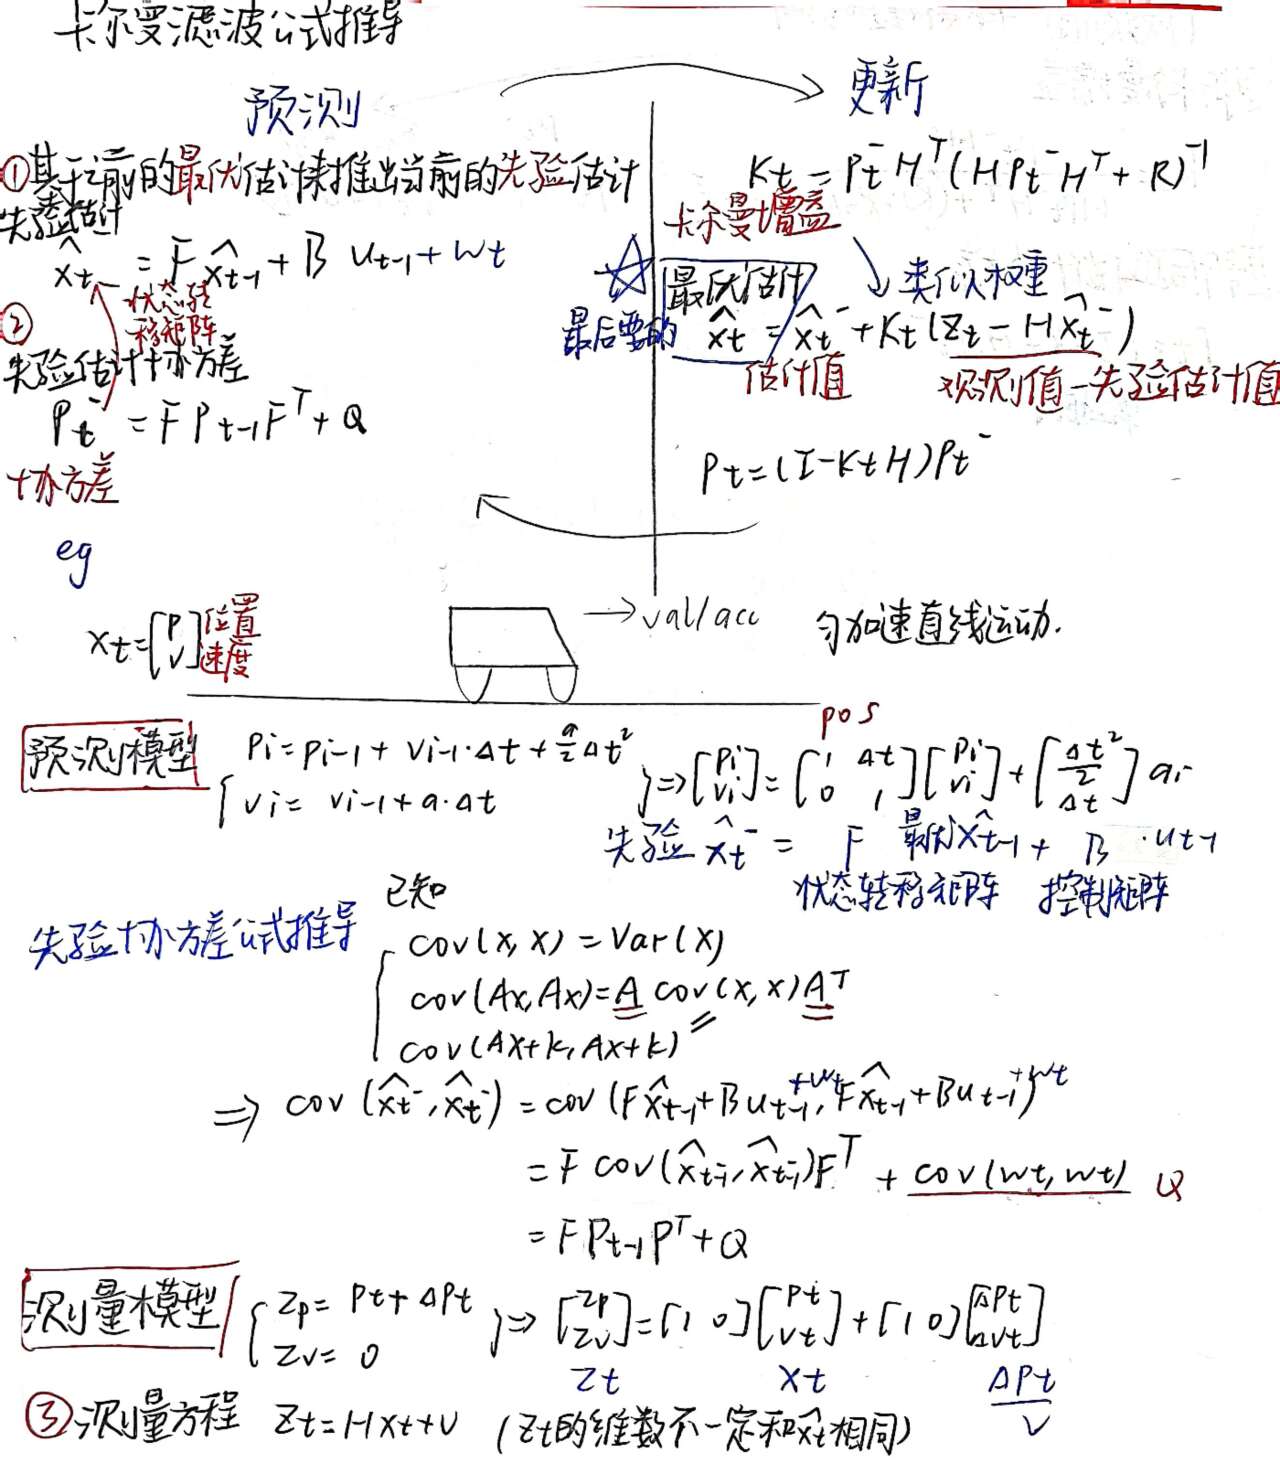 卡尔曼滤波公式推导
预测
更新
①基于之前的最优估计来推出当前的先验估计
先验估计
x̂t⁻ = F x̂t-1 + B ut-1 + wt
状态转
移矩阵
②
先验估计协方差
Pt⁻ = F Pt-1 Fᵀ + Q
协方差
Kt = Pt⁻ Hᵀ (H Pt⁻ Hᵀ + R)⁻¹
卡尔曼增益
类似权重
☆ 最优估计
最后要的 x̂t = x̂t⁻ + Kt (Zt - H x̂t⁻)
估计值 观测值-先验估计值
Pt = (I - Kt H) Pt⁻
eg
xt = [P V] 位置 速度
→ val/acc 匀加速直线运动.
pos
预测模型 { Pi = Pi-1 + Vi-1·Δt + a/2 Δt² Vi = Vi-1 + a·Δt } ⇒ [Pi Vi] = [1 Δt 0 1] [Pi Vi] + [Δt²/2 Δt] ai
先验 x̂t⁻ = F 最优 x̂t-1 + B · ut-1
状态转移矩阵 控制矩阵
已知
先验协方差公式推导
cov(x, x) = Var(x)
cov(Ax, Ax) = A cov(x, x) Aᵀ
cov(Ax+k, Ax+k) =
⇒ cov(x̂t⁻, x̂t⁻) = cov(F x̂t-1 + B ut-1 + wt, F x̂t-1 + B ut-1 + wt)
= F cov(x̂t-1, x̂t-1) Fᵀ + cov(wt, wt) Q
= F Pt-1 Pᵀ + Q
测量模型 { Zp = Pt + ΔPt Zv = 0 } ⇒ [Zp Zv] = [1 0] [Pt Vt] + [1 0] [ΔPt ΔVt]
Zt Xt ΔPt
V
③测量方程 Zt = Hxt + v (Zt的维数不一定和x̂t相同)